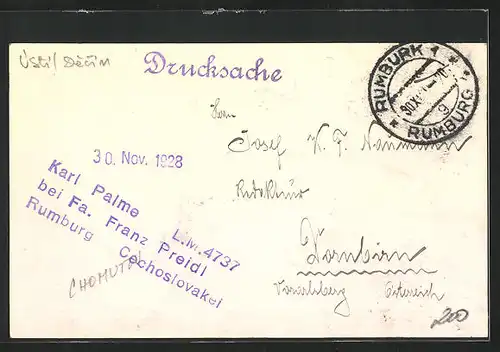 Ústí/Děčín
Drucksache
RUMBURK 1
RUMBURG
30. Nov. 1928
Karl Palme L.M.4737
bei Fa. Franz Preidl
Rumburg Cechoslovakei
CHOMUTOV
Herrn
Josef K. F. Naumann
Redakteur
Dornbirn
Vorarlberg Österreich
200